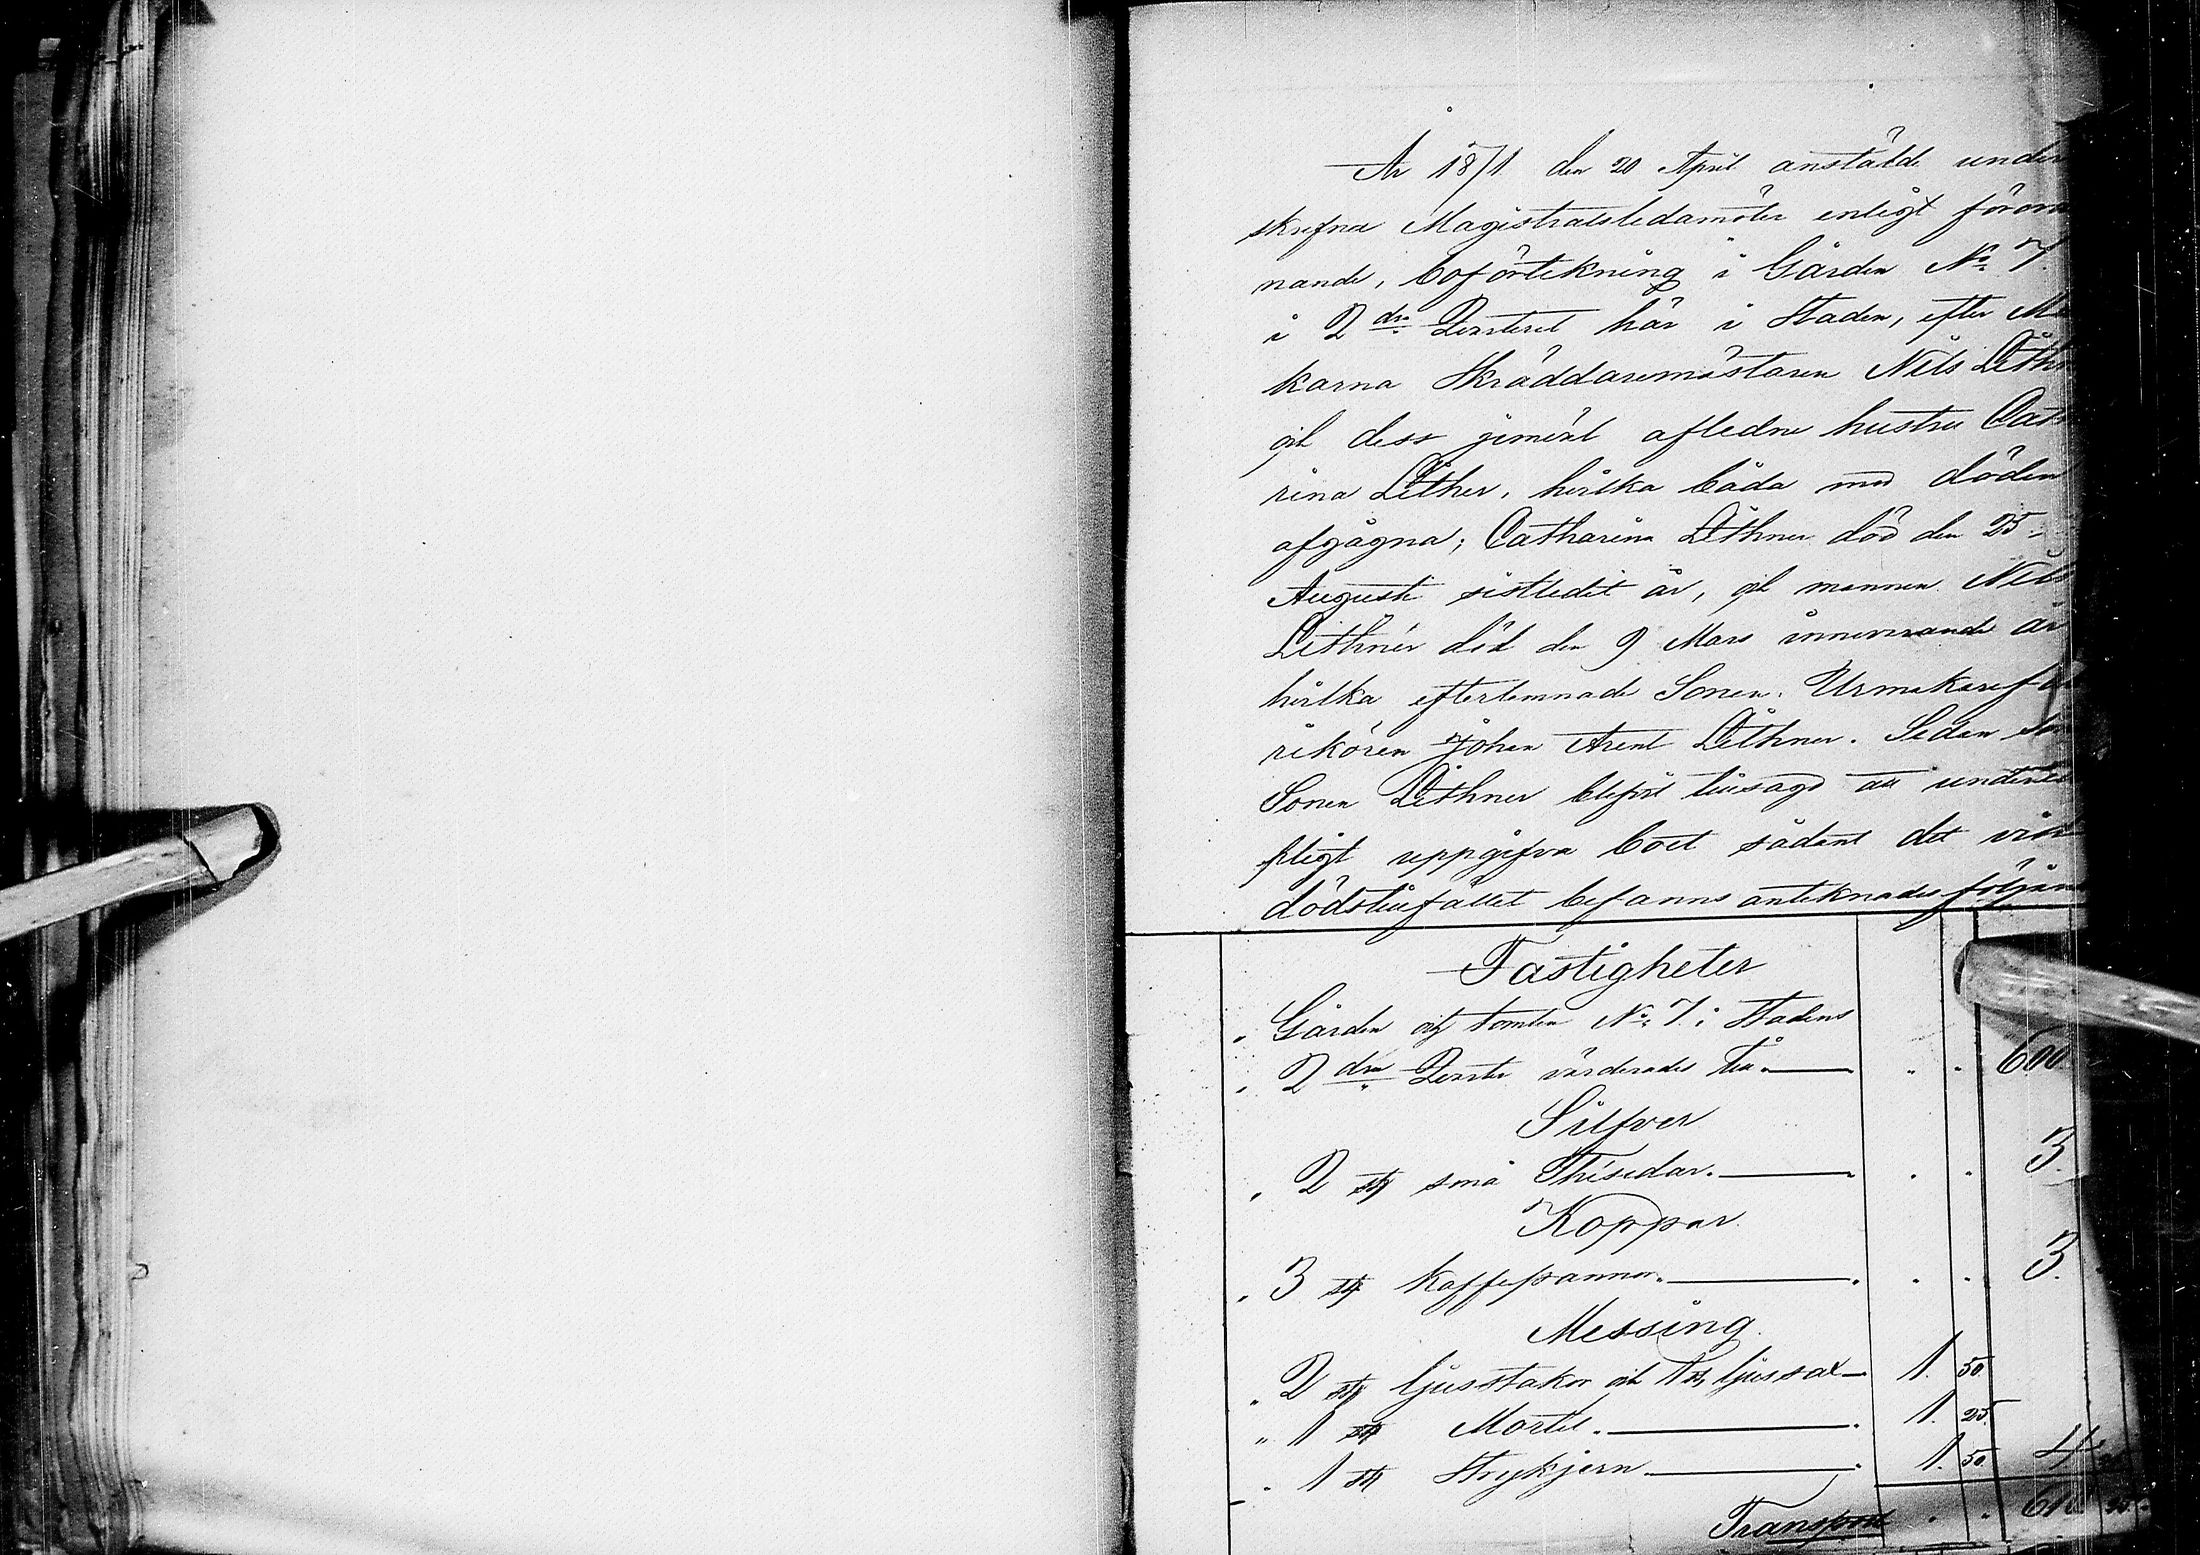 År 1871 den 20 April anstälde under
skrefne Magistratsledamöter enligt föror
nande, boförtekning i Gården No 7.
i 2dra Qvarteret här i Staden, efter Ma
karna Skräddaremästaren Nils Lithn
och dess jemväl afledne hustru Cath
rina Lithner, hvilka båda med döden
afgågna; Catharina Lithner död den 25
Augusti sistledit år, och mannen Nils
Lithnér död den 9 Mars innevarande år
hvilka efterlemnade Sonen Urmakaref
rikören Johan Arent Lithner. Sedan
Sonen Lithner blifvit tillsagd att
uppgifva boet sådant det vid
dödstillfället befanns anteknades följan
Fastigheter
" Gården och tomten No 7. i Stadens
" 2dra Qvarter värderades till — " " 600
Silfver
" 2 st små Théskedar. — " " 3.
Koppar
" 3 st Kaffepannor. — " " 3.
Messing
" 2 st ljusstakar och 1 st ljussax — 1. 50.
" 1 st Mortel. — 1. 25.
" 1 st Strykjern — 1. 50. 4
Transport " " 610